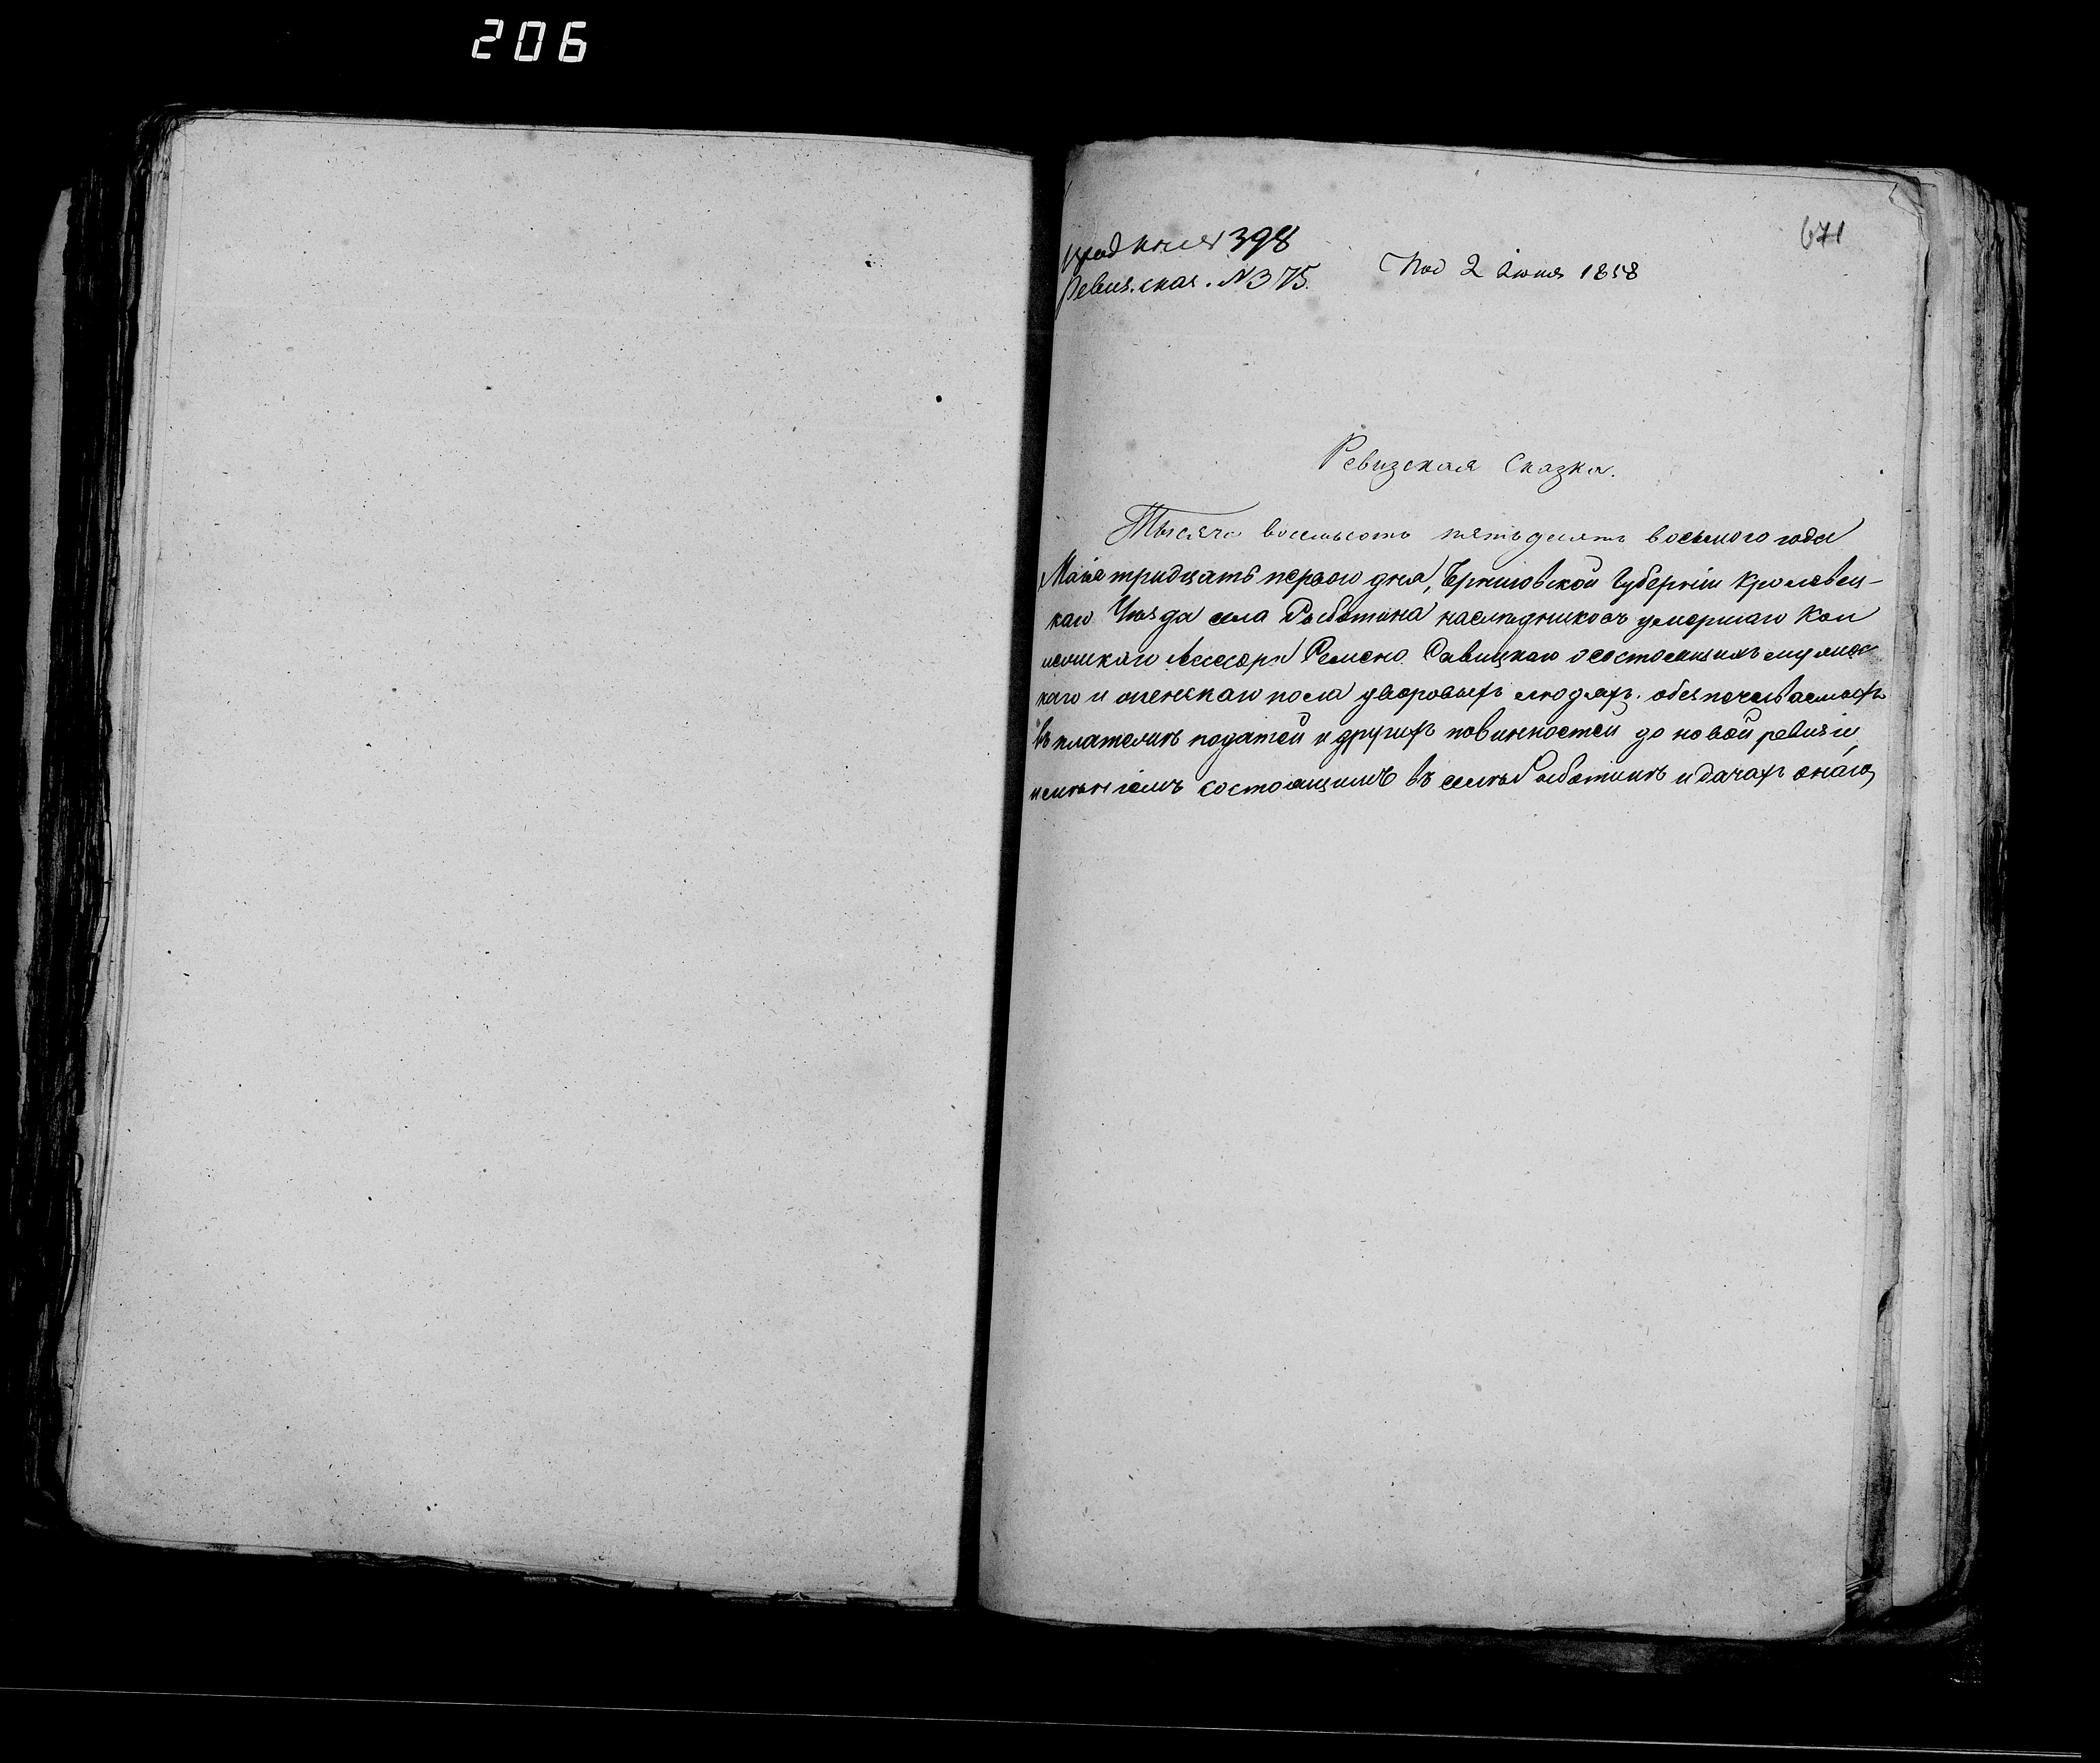 206
671
398
Ревиз. сказ. № 375.
Под 2 Іюня 1858
Ревизская Сказка.
Тысяча восемьсотъ пятьдесятъ восьмого года
Маія тридцать первого дня, Черниговской Губерніи Кролевец-
каго Уѣзда села Рыботина наслѣдниковъ умершаго Кол
лежскаго Ассесора Семена Савицкаго о состоящихъ мужес
каго и женскаго пола дворовыхъ людяхъ, обезпечиваемыхъ
въ платежѣ податей и другихъ повинностей до новой ревизіи,
имѣніемъ состоящимъ въ селѣ Рыботинѣ и дачахъ онаго,